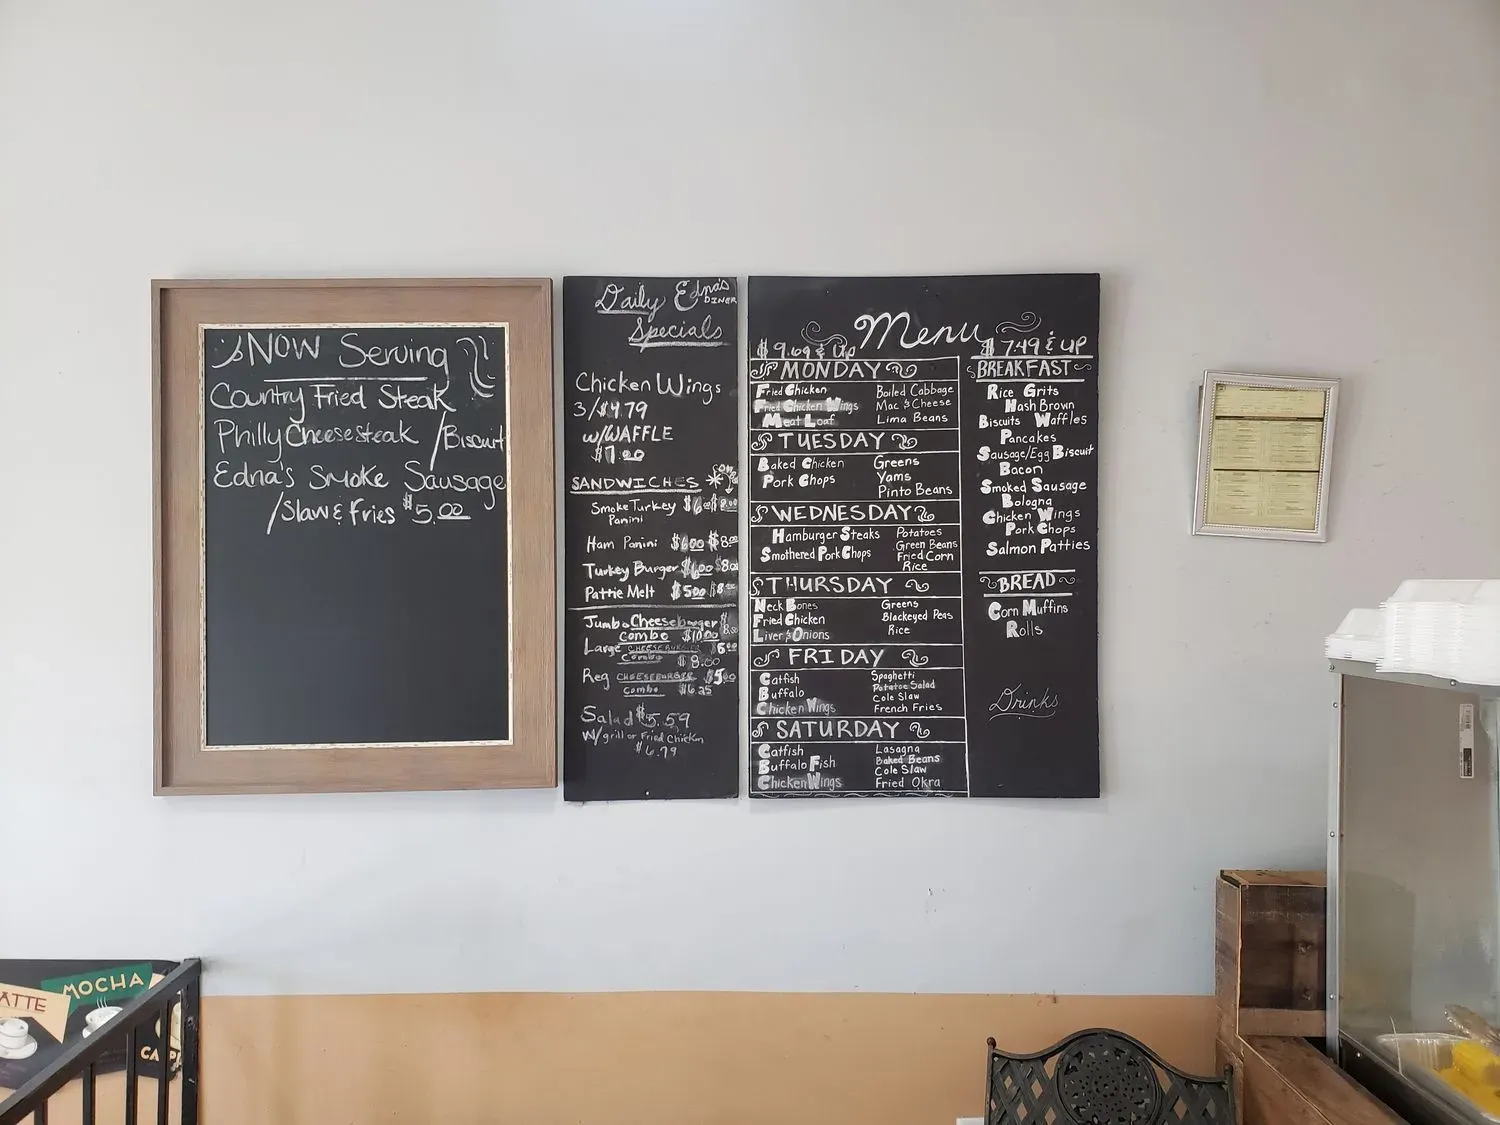 NOW Serving
Country Fried Steak
Philly Cheesesteak /Biscuit
Edna's Smoke Sausage
/Slaw & Fries $5.00
Daily Edna's
DINER
Specials
Chicken Wings
3/$4.79
w/WAFFLE
$7.00
SANDWICHES
Smoke Turkey $6
Panini
Ham Panini $6.00 $8.00
Turkey Burger $6.00 $8.00
Pattie Melt $5.00 $8
Jumbo Cheeseburger
Combo $10.00
Large CHEESEBURGER
Combo $8.00
Reg CHEESEBURGER $5.00
Combo $6.25
Salad $5.59
W/grill or Fried Chicken
$6.79
Menu
$9.69 & Up
MONDAY
Fried Chicken Boiled Cabbage
Fried Chicken Wings Mac & Cheese
Meat Loaf Lima Beans
TUESDAY
Baked Chicken Greens
Pork Chops Yams
Pinto Beans
WEDNESDAY
Hamburger Steaks Potatoes
Smothered Pork Chops Green Beans
Fried Corn
Rice
THURSDAY
Neck Bones Greens
Fried Chicken Blackeyed Peas
Liver & Onions Rice
FRIDAY
Catfish Spaghetti
Buffalo Potatoe Salad
Chicken Wings Cole Slaw
French Fries
SATURDAY
Catfish Lasagna
Buffalo Fish Baked Beans
Chicken Wings Cole Slaw
Fried Okra
$7.49 & UP
BREAKFAST
Rice Grits
Hash Brown
Biscuits Waffles
Pancakes
Sausage/Egg Biscuit
Bacon
Smoked Sausage
Bologna
Chicken Wings
Pork Chops
Salmon Patties
BREAD
Corn Muffins
Rolls
Drinks
ATTE
MOCHA